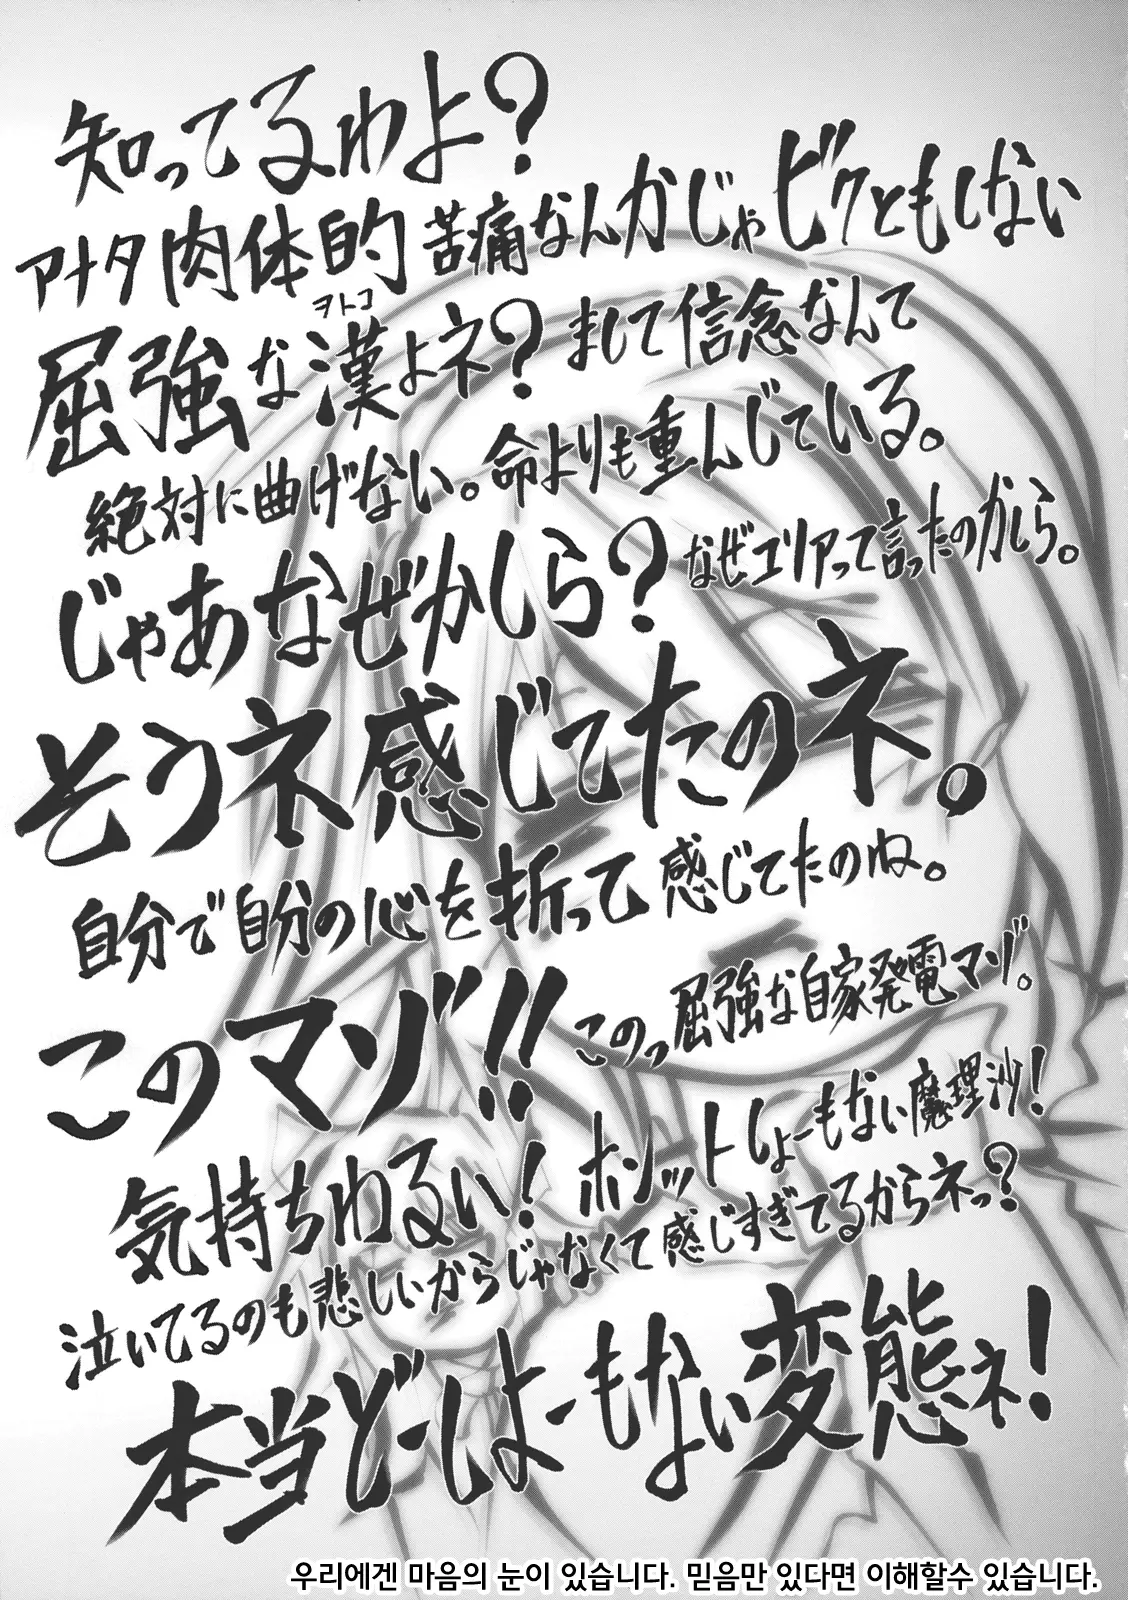 知ってるわよ?
アナタ肉体的苦痛なんかじゃビクともしない
ヲトコ
屈強な漢よネ?まして信念なんて
絶対に曲げない。命よりも重んじている。
じゃあなぜかしら?なぜエリアって言ったのかしら。
そうネ感じてたのネ。
自分で自分の心を折って感じてたのね。
このマゾ!!このっ屈強な自家発電マゾ。
気持ちわるい!ホントしょーもない魔理沙!
泣いてるのも悲しいからじゃなくて感じすぎてるからネっ?
本当どーしよーもない変態ネ!
우리에겐 마음의 눈이 있습니다. 믿음만 있다면 이해할수 있습니다.